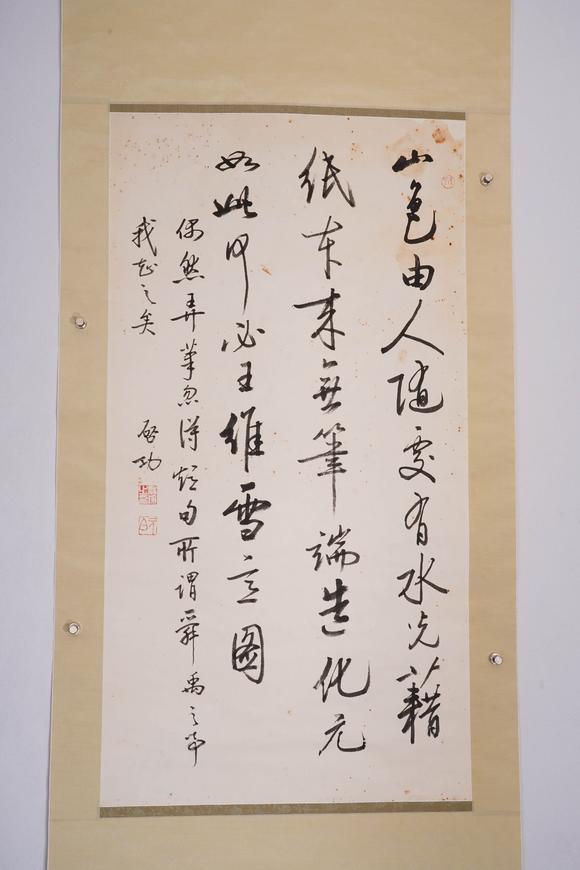 山色由人随处有水光藉
纸本来无笔端造化元
如此何必王维雪意图
偶然弄笔忽得短句所谓舜禹之事
我知之矣
启功